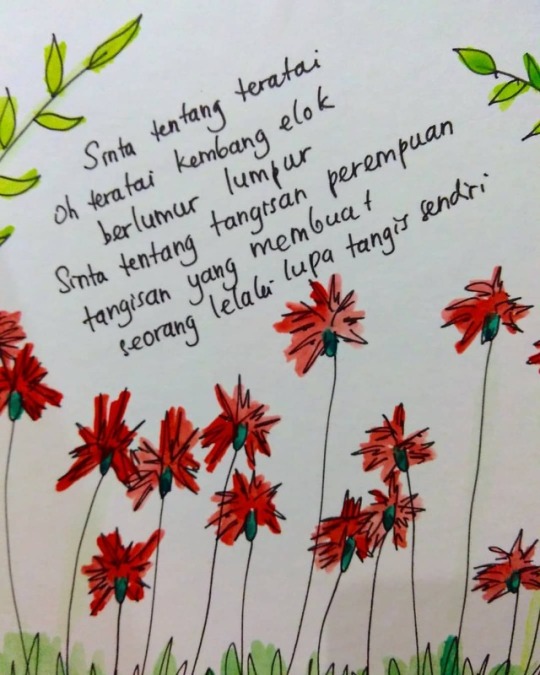 Sinta tentang teratai
oh teratai kembang elok
berlumur lumpur
Sinta tentang tangisan perempuan
tangisan yang membuat
seorang lelaki lupa tangis sendiri